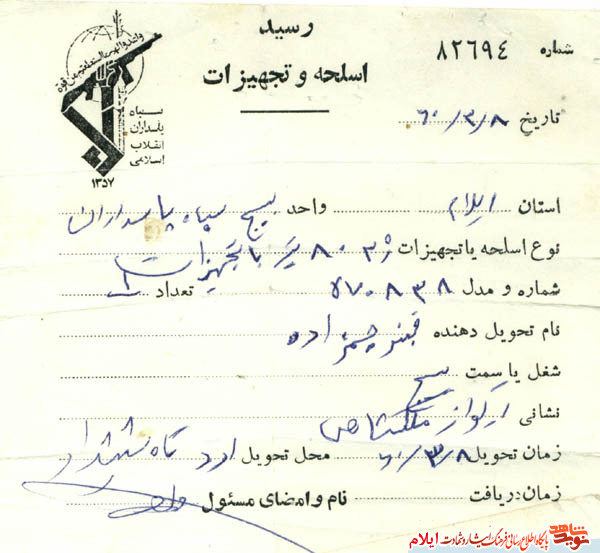 رسید
اسلحه و تجهیزات
شماره ۸۲۶۹۴
واعدوا لهم ما استطعتم من قوة
سپاه
پاسداران
انقلاب
اسلامی
۱۳۵۷
تاریخ ۶۰/۳/۸
استان ایلام واحد بسیج سپاه پاسداران
نوع اسلحه یا تجهیزات ژ۳ ۸۰ تیر با تجهیزات
شماره و مدل ۵۷۰۸۳۸ تعداد ۱
نام تحویل دهنده قنبر چمنزاده
شغل یا سمت بسیج
نشانی ارکواز ملکشاهی
زمان تحویل ۶۰/۳/۸ محل تحویل
زمان دریافت نام و امضای مسئول
نوید شاهد
پایگاه اطلاع رسانی فرهنگ ایثار و شهادت ایلام